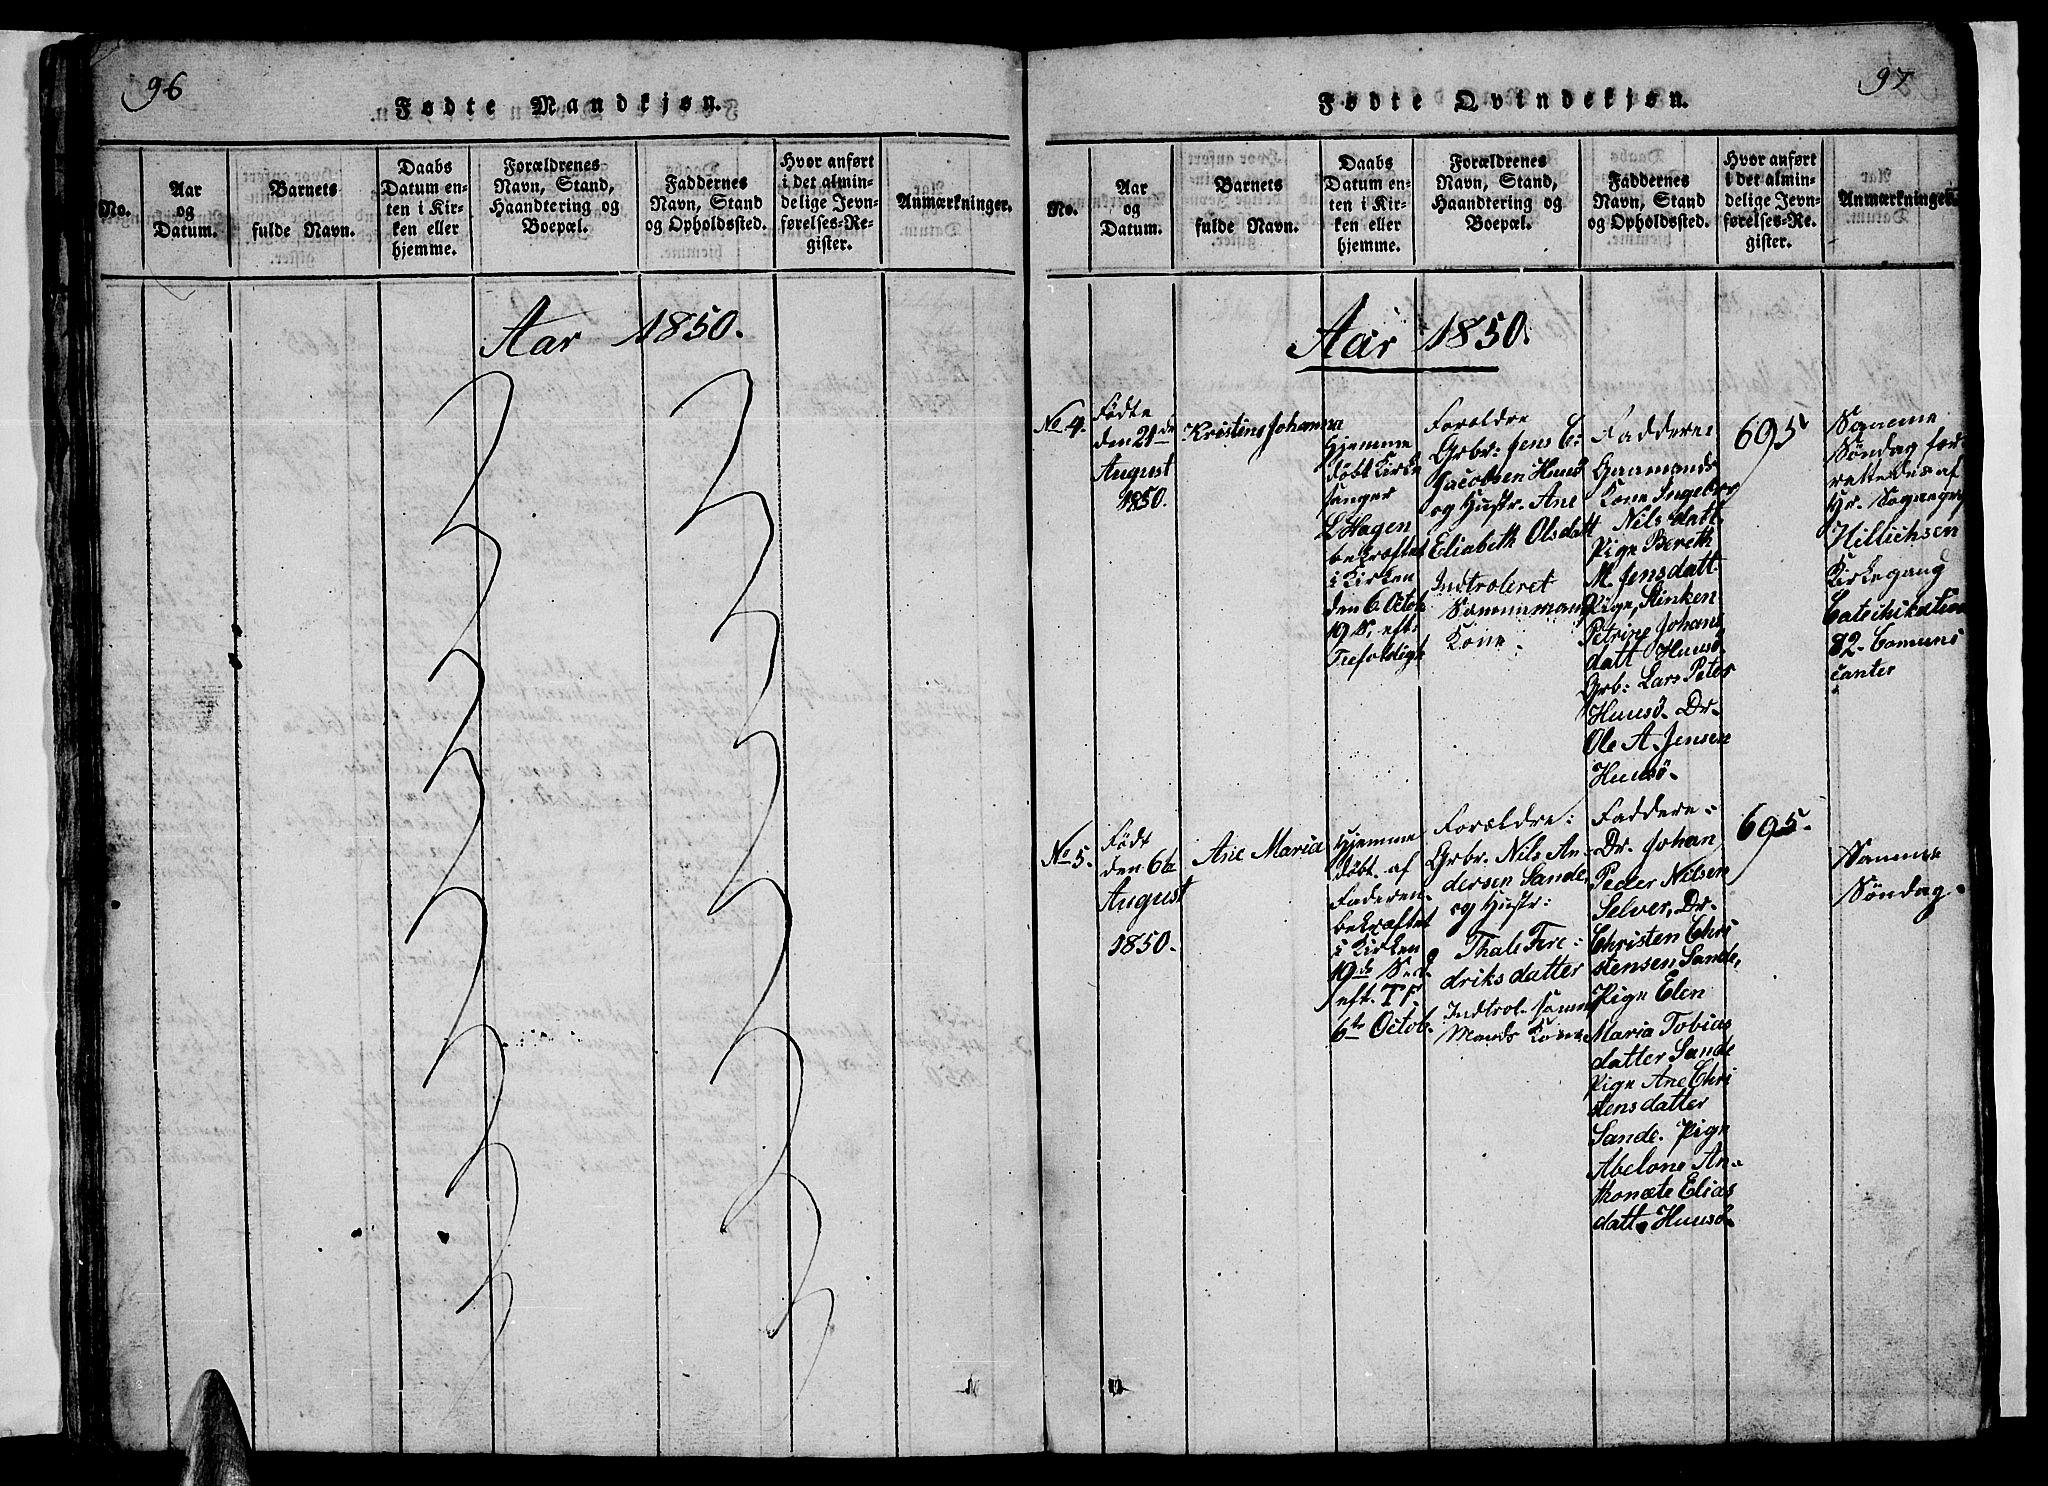 96
Fødte Mandkjøn.
No.
Aar
og
Datum.
Barnets
fulde Navn.
Daabs
Datum en-
ten i Kir-
ken eller
hjemme.
Forældrenes
Navn, Stand,
Haandtering og
Boepæl.
Faddernes
Navn, Stand
og Opholdssted.
Hvor anført
i det almin-
delige Jevn-
førelses-Re-
gister.
Anmærkninger.
Aar 1850.
97
Fødte Qvindekjøn.
No.
Aar
og
Datum.
Barnets
fulde Navn.
Daabs
Datum en-
ten i Kir-
ken eller
hjemme.
Forældrenes
Navn, Stand,
Haandtering og
Boepæl.
Faddernes
Navn, Stand
og Opholdssted.
Hvor anført
i det almin-
delige Jevn-
førelses-Re-
gister.
Anmærkninger.
Aar 1850.
No 4.
Födte
den 21de
August
1850.
Kristine Johanna
Hjemme
döbt Kirke
sanger
L Hagen
bekræftet
i Kirken
den 6 Octob
19 S. eft:
Trefoldigh
Foreldre
Grbr: Jens C:
Jacobsen Huusö
og Hustr. Ane
Eliabeth Olsdatt
Indtroleret
Sammemand
Kone.
Faddere:
Gaamands
Kone Ingeborg
Nilsdatt.
Pige Bereth
M. Jensdatt.
Pige,
Petrine Johans
datt Huusö.
Grb: Lars Peter
Huusö. Dr.
Ole A. Jensen
Huusö.
695
Samme
Söndag for
rettedes af
Hr. Sognepr
Kirkegang
Catechisation
82 Comuni
canter
No 5.
Födt
den 6te
August
1850.
Ane Maria
Hjemme
döbt af
Faderen.
bekræftet
i Kirken
19de Sönd
eft. T F.
6te Octob.
Forældre:
Grbr. Nils An-
dersen Sande,
og Hustr:
Thale Fre-
driksdatter
Indtrol. samme
Mands Kone.
Faddere:
Dr. Johan
Peder Nilsen
Selver, Dr.
Christen Chri
stensen Sande,
Pige Elen
Maria Tobias
datter Sande
Pige Ane Chri
stensdatter
Sande. Pige
Abelone An-
thonete Elias
datt. Huusö
695.
Samme
Söndag.